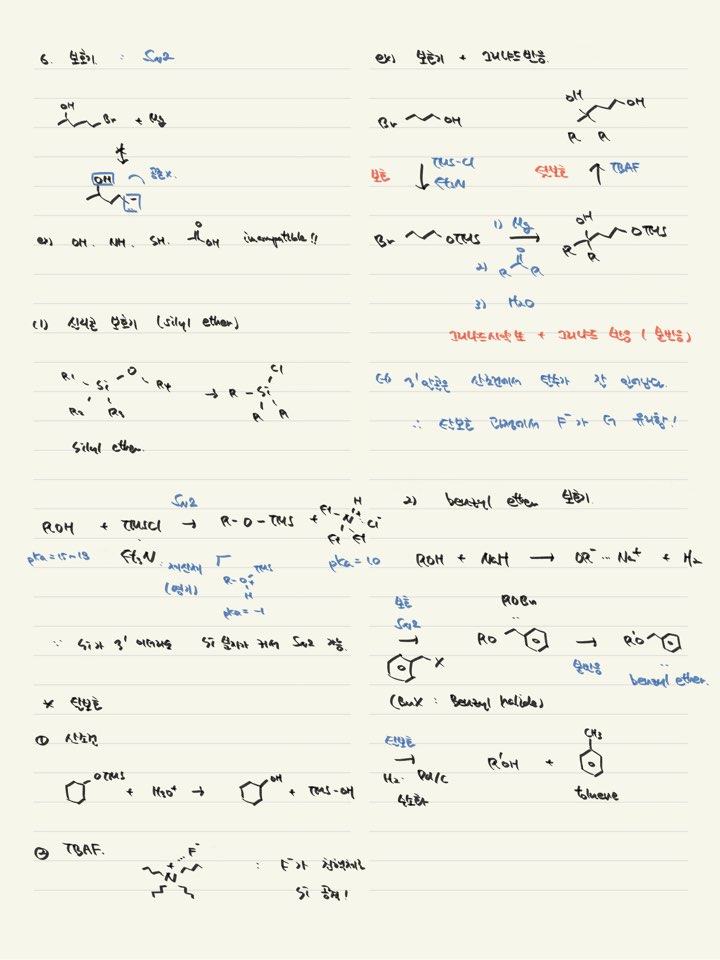 6. 보호기 : SN2
OH
Br + Mg
OH 공존x.
ex) OH. NH. SH. O OH incompatible!!
(1) 실리콘 보호기 (silyl ether)
R1 Si O R4 → R-Si Cl
R2 R3 R R
silyl ether.
SN2
ROH + TMSCl → R-O-TMS + Et N H Cl-
Et Et
pka=15~18 Et3N (염기) R-O+ TMS H pka=10
pka=-1
∵ Si가 3°이더라도 Si 원자가 커서 SN2 가능.
* 탈보호
① 산조건
OTMS + H3O+ → OH + TMS-OH
② TBAF. F- : F-가 친핵체로
N+ Si 공격!
ex) 보호기 + 그리냐드반응.
Br OH
OH OH
R R
보호 ↓ TMS-Cl
Et3N
탈보호 ↑ TBAF
Br OTMS 1) Mg → OH OTMS
2) R O R R R
3) H2O
그리냐드시약 + 그리냐드 반응 (본반응)
3°알콜은 산조건에서 탈수가 잘 일어난다.
∴ 탈보호 과정에서 F-가 더 유리함!
2) benzyl ether 보호기
ROH + NaH → OR- … Na+ + H2
보호 ROBn
SN2
→ RO → R'O
X 본반응 benzyl ether.
(BnX : Benzyl halide)
탈보호 CH3
→ R'OH +
H2. Pd/C toluene
수소화